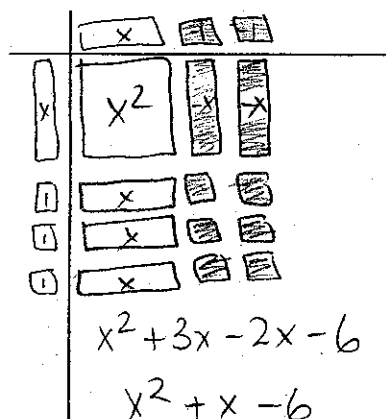 x -1 -1
x x² -x -x
1 x
1 x
1 x
x² + 3x - 2x - 6
x² + x - 6